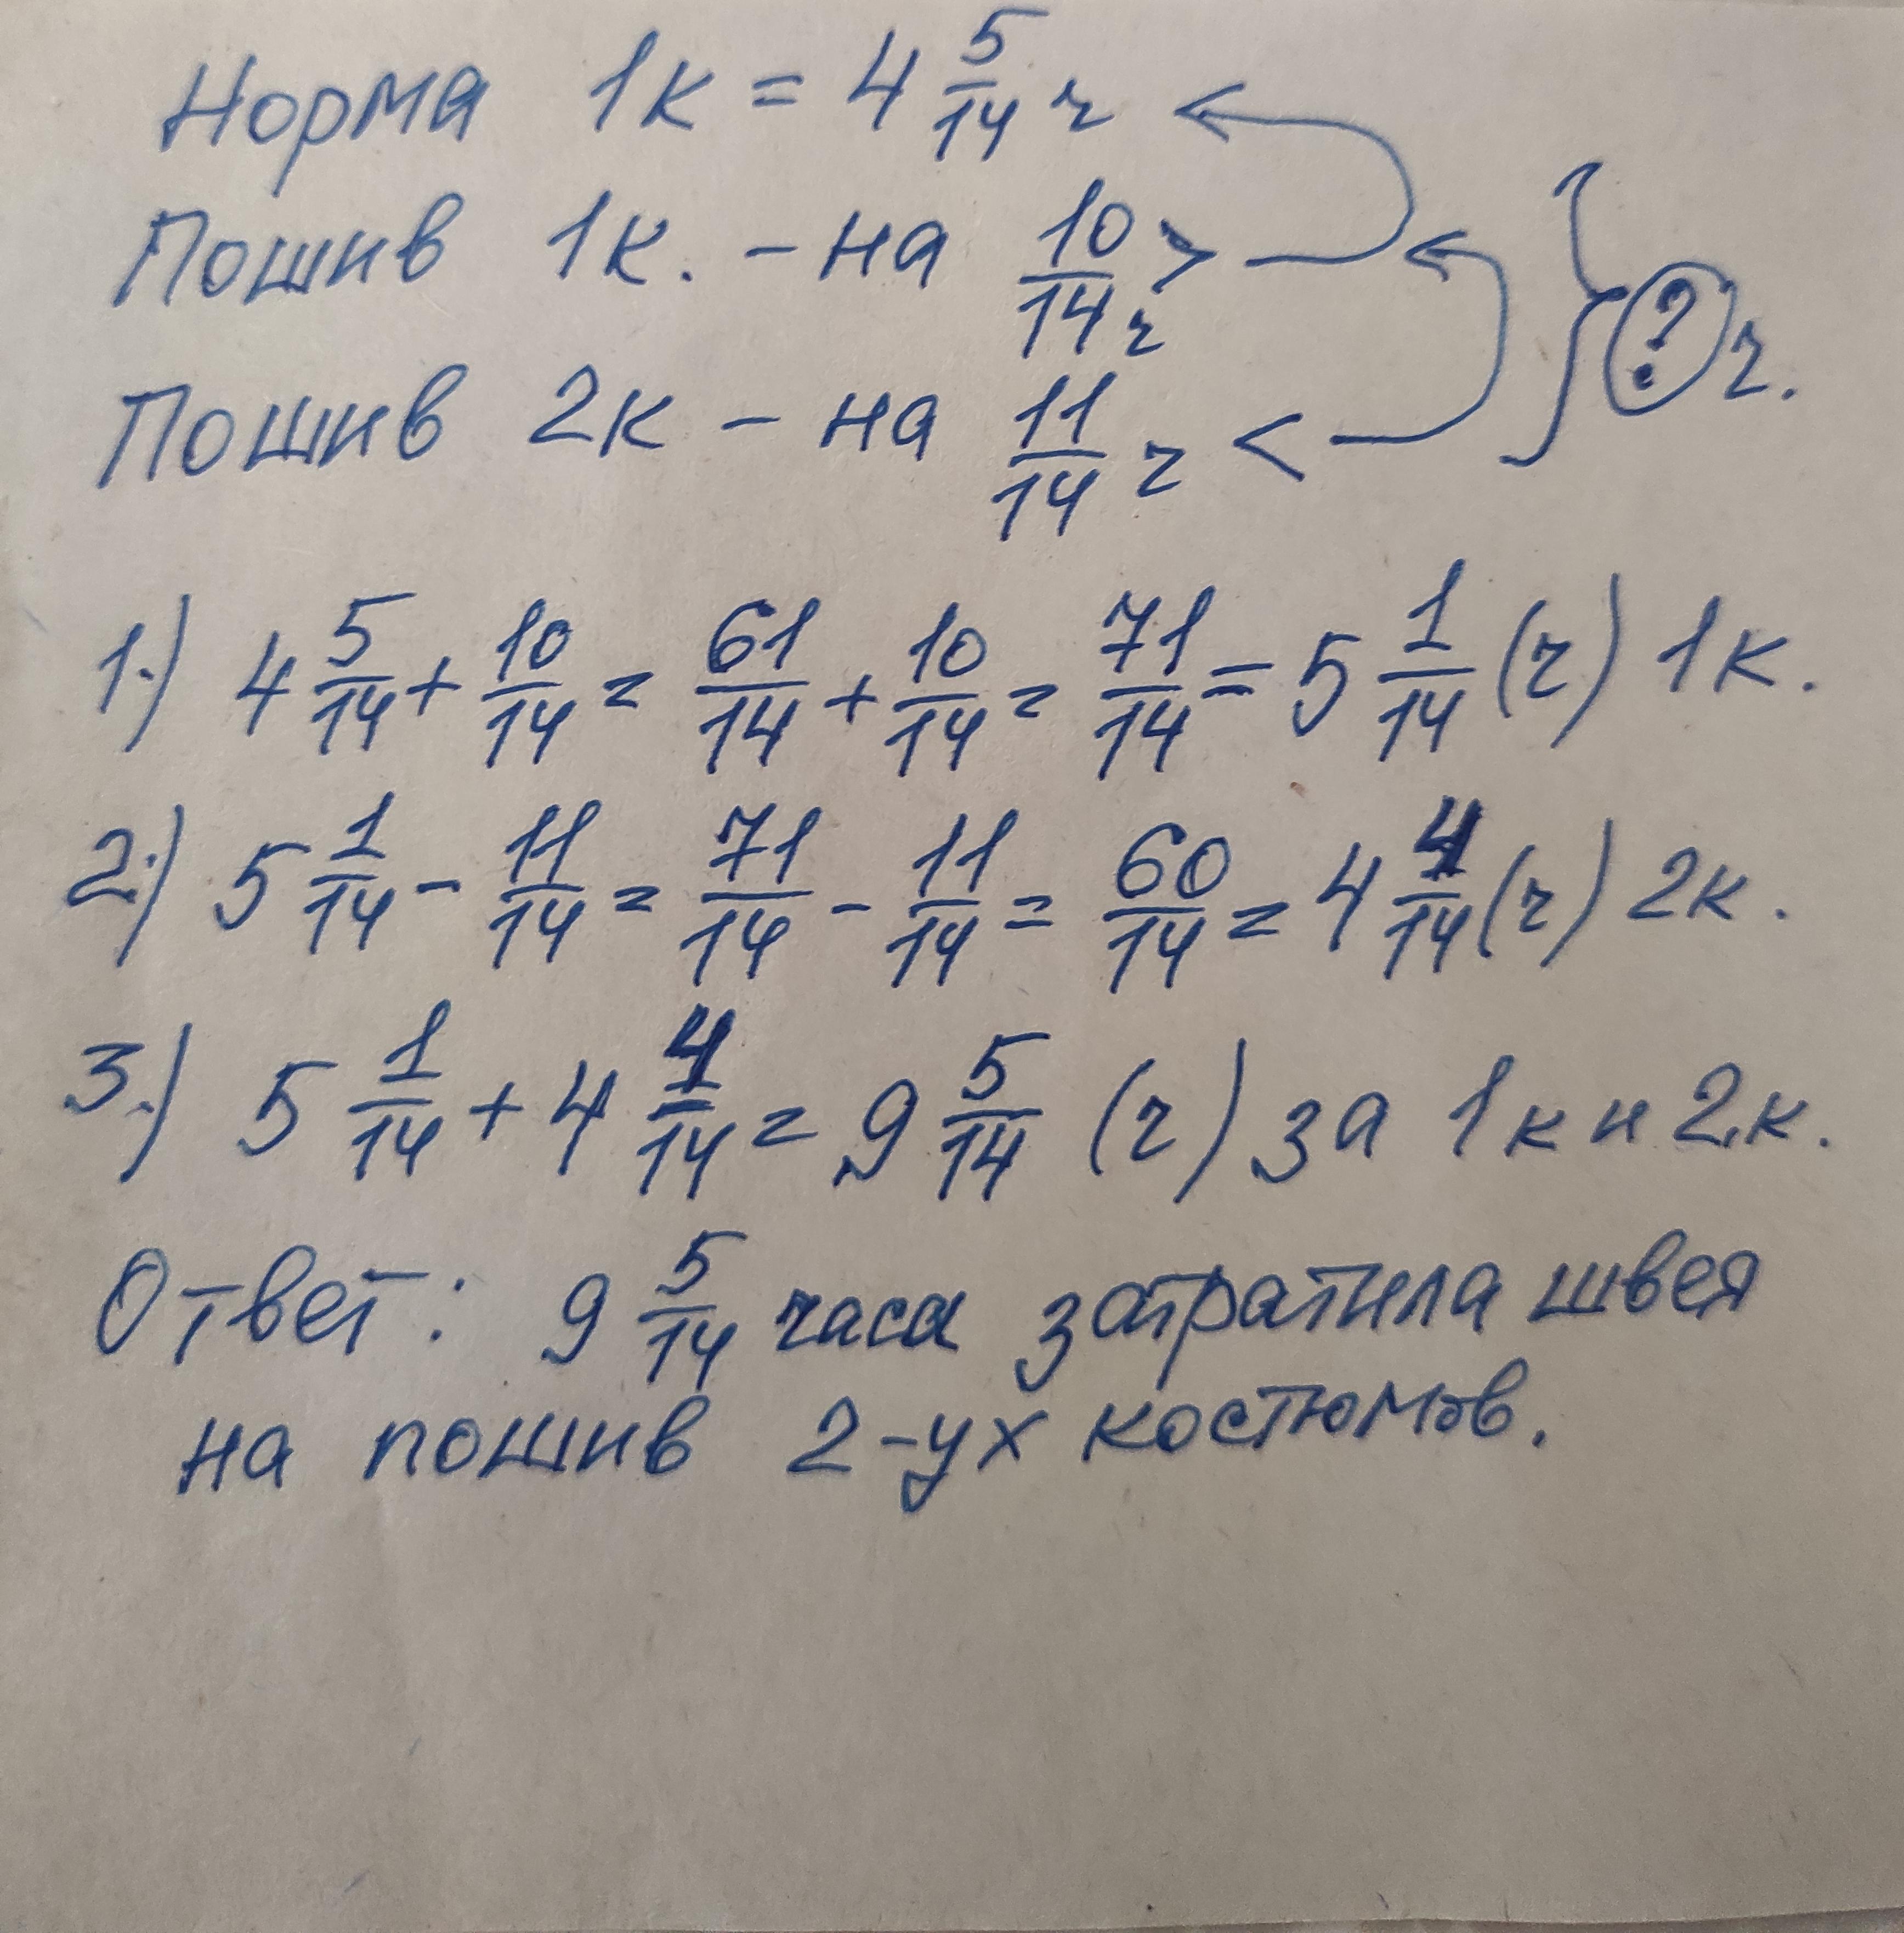 Норма 1к = 4 5/14 ч
Пошив 1к. - на 10/14 ч >
Пошив 2к - на 11/14 ч < } ? ч.
1.) 4 5/14 + 10/14 = 61/14 + 10/14 = 71/14 = 5 1/14 (ч) 1к.
2.) 5 1/14 - 11/14 = 71/14 - 11/14 = 60/14 = 4 4/14 (ч) 2к.
3.) 5 1/14 + 4 4/14 = 9 5/14 (ч) за 1к и 2к.
Ответ: 9 5/14 часа затратила швея
на пошив 2-ух костюмов.